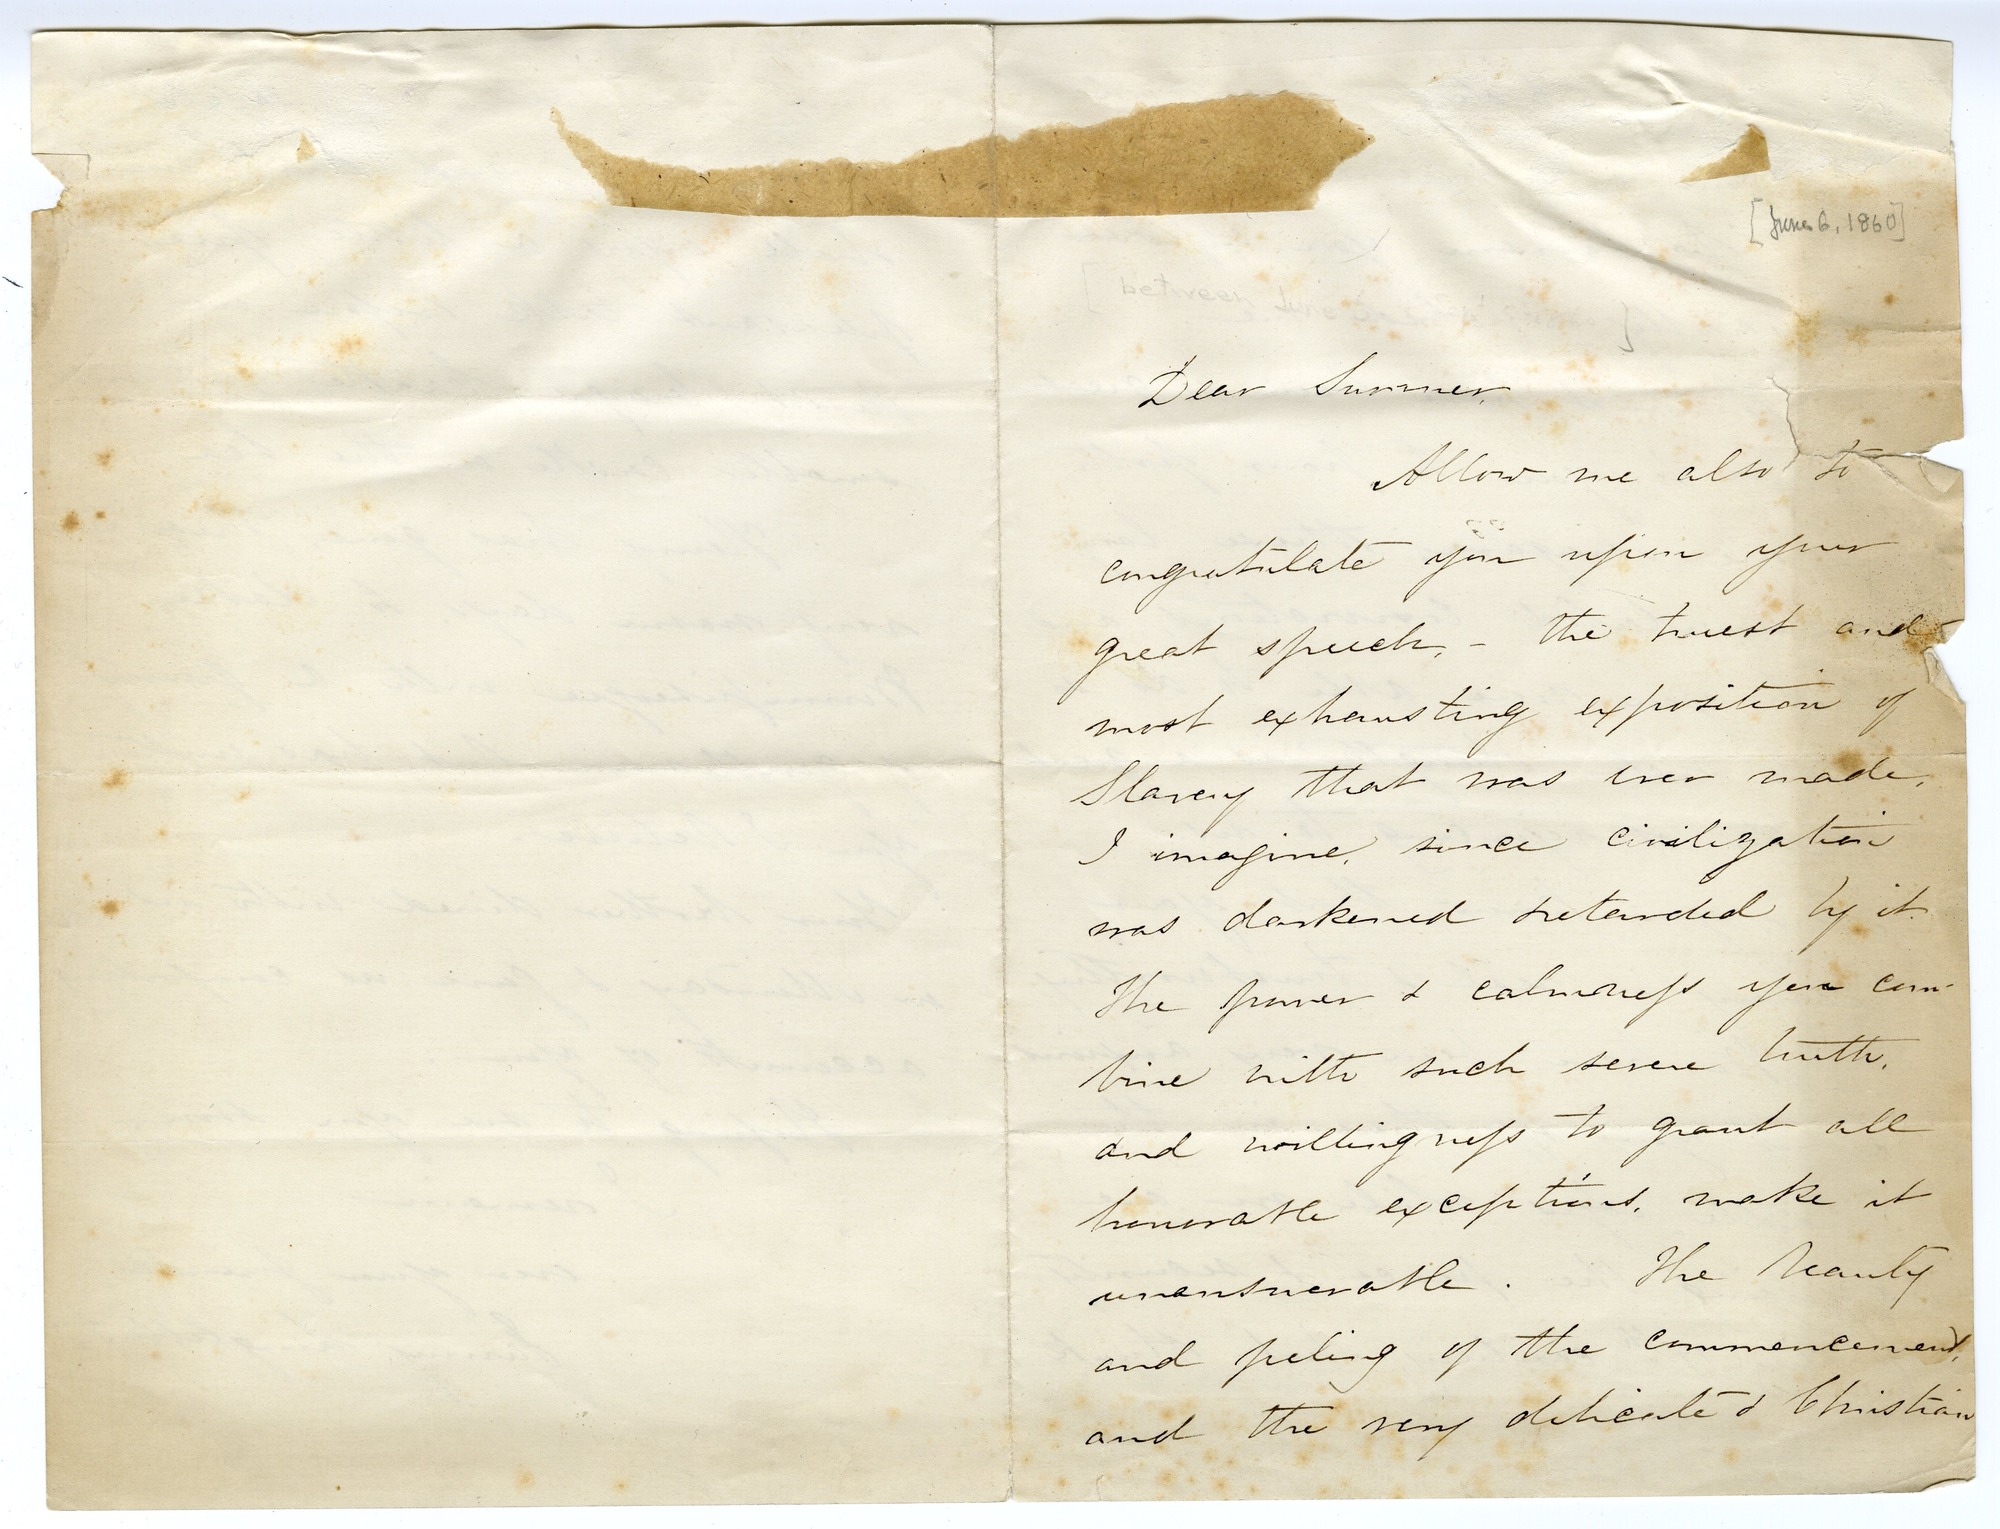 [June 6, 1860]
[between June
Dear Sumner,
Allow me also to
congratulate you upon your
great speech, - the truest and
most exhausting exposition of
Slavery that was ever made,
I imagine, since civilization
was darkened & retarded by it.
The power & calmness you com-
bine with such severe truth,
and willingness to grant all
honorable exceptions, make it
unanswerable. The beauty
and feeling of the commencement,
and the very delicate & Christian